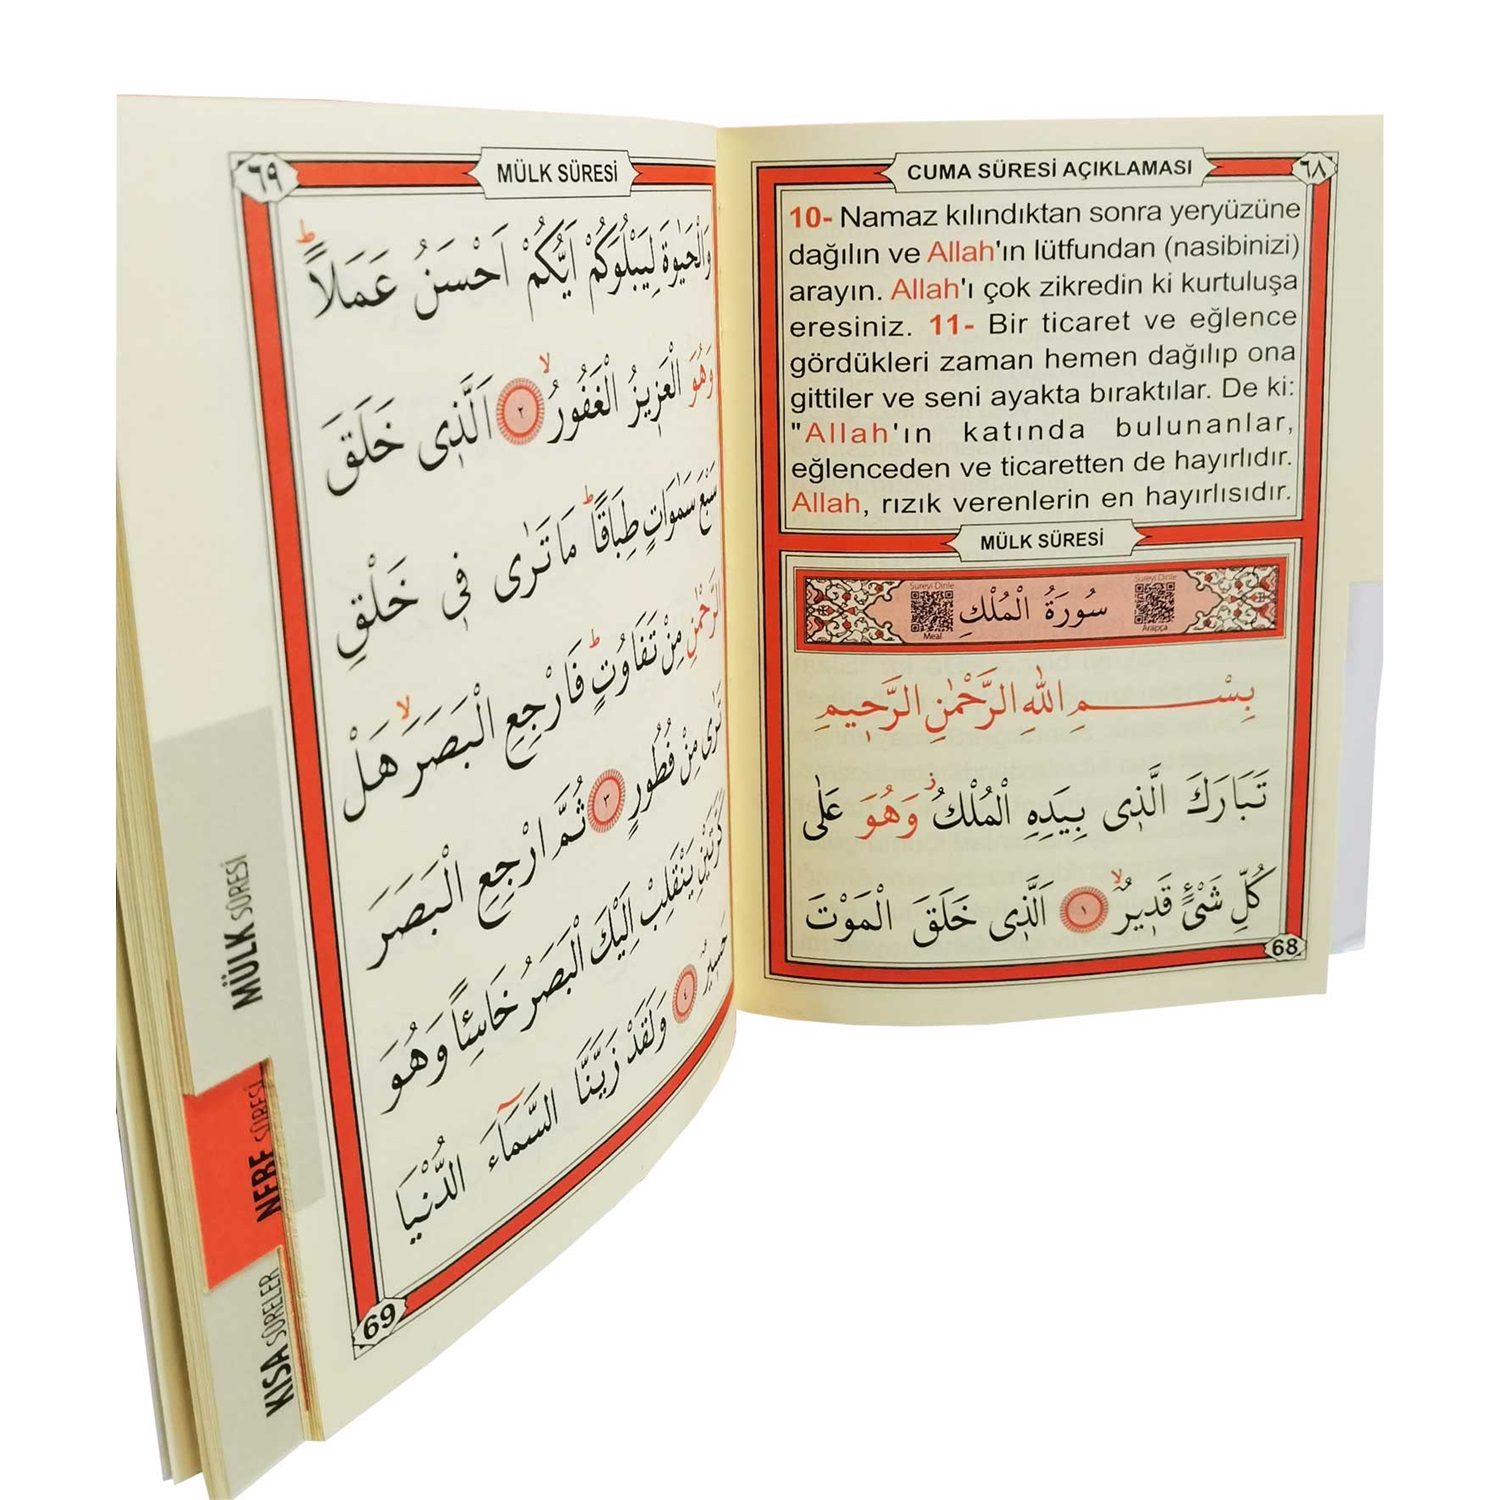 CUMA SÛRESİ AÇIKLAMASI
٦٨
10- Namaz kılındıktan sonra yeryüzüne
dağılın ve Allah'ın lütfundan (nasibinizi)
arayın. Allah'ı çok zikredin ki kurtuluşa
eresiniz. 11- Bir ticaret ve eğlence
gördükleri zaman hemen dağılıp ona
gittiler ve seni ayakta bıraktılar. De ki:
"Allah'ın katında bulunanlar,
eğlenceden ve ticaretten de hayırlıdır.
Allah, rızık verenlerin en hayırlısıdır.
MÜLK SÛRESİ
Sureyi Dinle
Arapça
سُورَةُ الْمُلْكِ
Sureyi Dinle
Meal
بِسْمِ اللهِ الرَّحْمٰنِ الرَّحِيمِ
تَبَارَكَ الَّذِى بِيَدِهِ الْمُلْكُ وَهُوَ عَلٰى
كُلِّ شَىْءٍ قَدِيرٌ ﴿١﴾ اَلَّذِى خَلَقَ الْمَوْتَ
68
MÜLK SÛRESİ
٦٩
وَالْحَيٰوةَ لِيَبْلُوَكُمْ اَيُّكُمْ اَحْسَنُ عَمَلًا
وَهُوَ الْعَزِيزُ الْغَفُورُ ﴿٢﴾ اَلَّذِى خَلَقَ
سَبْعَ سَمٰوَاتٍ طِبَاقًا مَا تَرٰى فِى خَلْقِ
الرَّحْمٰنِ مِنْ تَفَاوُتٍ فَارْجِعِ الْبَصَرَ هَلْ
تَرٰى مِنْ فُطُورٍ ﴿٣﴾ ثُمَّ ارْجِعِ الْبَصَرَ
كَرَّتَيْنِ يَنْقَلِبْ اِلَيْكَ الْبَصَرُ خَاسِئًا وَهُوَ
حَسِيرٌ ﴿٤﴾ وَلَقَدْ زَيَّنَّا السَّمَاءَ الدُّنْيَا
69
MÜLK SÛRESİ
NEBE SÛRESİ
KISA SÛRELER